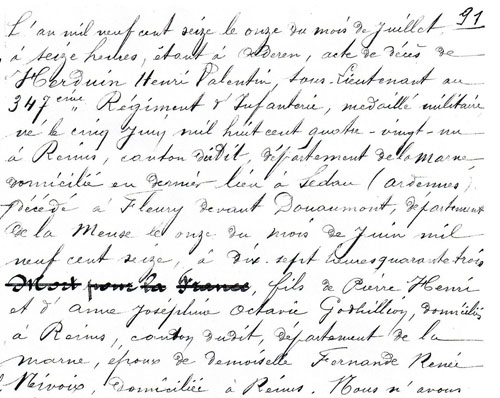 91
L'an mil neuf cent seize le onze du mois de Juillet
à seize heures, étant à Oderen, acte de décès de
Herduin Henri Valentin, Sous-Lieutenant au
347eme Régiment d'Infanterie, médaillé militaire
né le cinq Juin mil huit cent quatre-vingt-un
à Reims, canton dudit, département de la Marne
domicilié en dernier lieu à Sedan (ardennes)
décédé à Fleury devant Douaumont, département
de la Meuse le onze du mois de Juin mil
neuf cent seize, à dix-sept heures quarante trois
Mort pour la France, fils de Pierre Henri
et d'Anne Joséphine Octavie Godhillion, domiciliés
à Reims, canton dudit, département de la
marne, époux de demoiselle Fernande Renée
Nivoix, domiciliée à Reims. Nous n'avons